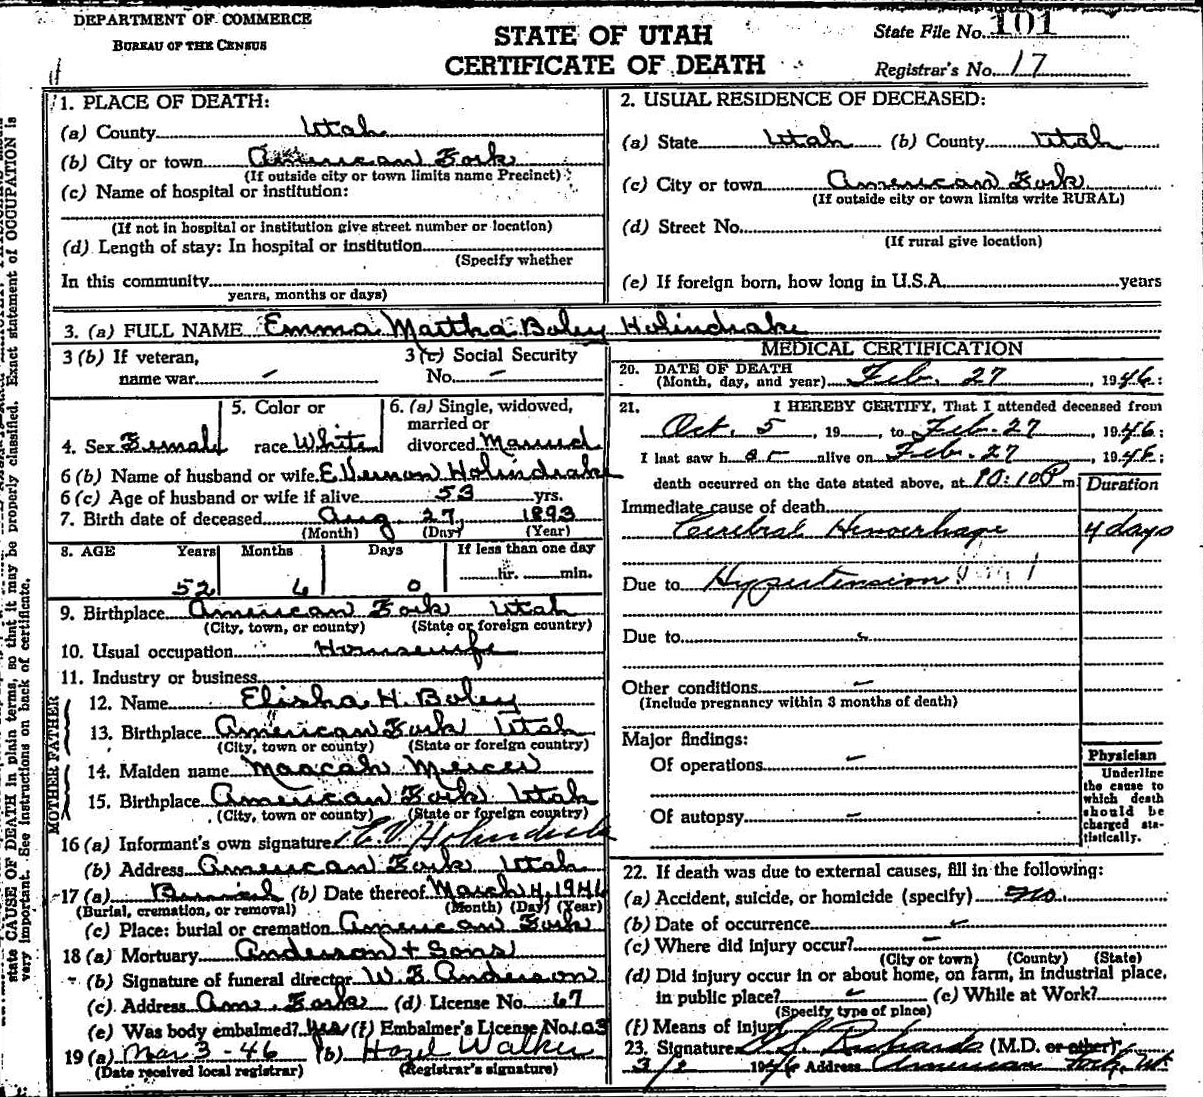 DEPARTMENT OF COMMERCE
BUREAU OF THE CENSUS
STATE OF UTAH
CERTIFICATE OF DEATH
State File No. 101
Registrar's No. 17
state CAUSE OF DEATH in plain terms, so that it may be properly classified. Exact statement of OCCUPATION is
very important. See instructions on back of certificate.
1. PLACE OF DEATH:
(a) County Utah
(b) City or town American Fork
(If outside city or town limits name Precinct)
(c) Name of hospital or institution:
(If not in hospital or institution give street number or location)
(d) Length of stay: In hospital or institution
(Specify whether
In this community
years, months or days)
2. USUAL RESIDENCE OF DECEASED:
(a) State Utah (b) County Utah
(c) City or town American Fork
(If outside city or town limits write RURAL)
(d) Street No.
(If rural give location)
(e) If foreign born, how long in U.S.A. years
3. (a) FULL NAME Emma Martha Boley Holindrake
3 (b) If veteran,
name war -
3 (c) Social Security
No. -
4. Sex Female
5. Color or
race White
6. (a) Single, widowed,
married or
divorced Married
6 (b) Name of husband or wife E. Vernon Holindrake
6 (c) Age of husband or wife if alive 53 yrs.
7. Birth date of deceased Aug. 27, 1893
(Month) (Day) (Year)
8. AGE Years Months Days If less than one day
52 6 0 hr. min.
9. Birthplace American Fork Utah
(City, town, or county) (State or foreign country)
10. Usual occupation Housewife
11. Industry or business
FATHER
12. Name Elisha H. Boley
13. Birthplace American Fork Utah
(City, town or county) (State or foreign country)
MOTHER
14. Maiden name Maacah Mercer
15. Birthplace American Fork Utah
(City, town or county) (State or foreign country)
16 (a) Informant's own signature E V Holindrake
(b) Address American Fork Utah
17 (a) Burial (b) Date thereof March 4, 1946
(Burial, cremation, or removal) (Month) (Day) (Year)
(c) Place: burial or cremation American Fork
18 (a) Mortuary Anderson + Sons
(b) Signature of funeral director W. E. Anderson
(c) Address Am. Fork (d) License No. 67
(e) Was body embalmed? Yes (f) Embalmer's License No. 103
19 (a) Mar 3 - 46 (b) Hazel Walker
(Date received local registrar) (Registrar's signature)
MEDICAL CERTIFICATION
20. DATE OF DEATH
(Month, day, and year) Feb. 27, 1946:
21. I HEREBY CERTIFY, That I attended deceased from
Oct. 5, 19, to Feb. 27, 1946;
I last saw her alive on Feb. 27, 1946;
death occurred on the date stated above, at 10:10 P m
Duration
Immediate cause of death
Cerebral Hemorrhage 4 days
Due to Hypertension
Due to -
Other conditions -
(Include pregnancy within 3 months of death)
Major findings:
Of operations -
Of autopsy -
Physician
Underline
the cause to
which death
should be
charged sta-
tistically.
22. If death was due to external causes, fill in the following:
(a) Accident, suicide, or homicide (specify) no.
(b) Date of occurrence -
(c) Where did injury occur? -
(City or town) (County) (State)
(d) Did injury occur in or about home, on farm, in industrial place,
in public place? - (e) While at Work?
(Specify type of place)
(f) Means of injury
23. Signature Richards (M.D. or other)
3/2 1946 Address American Fork, Ut.